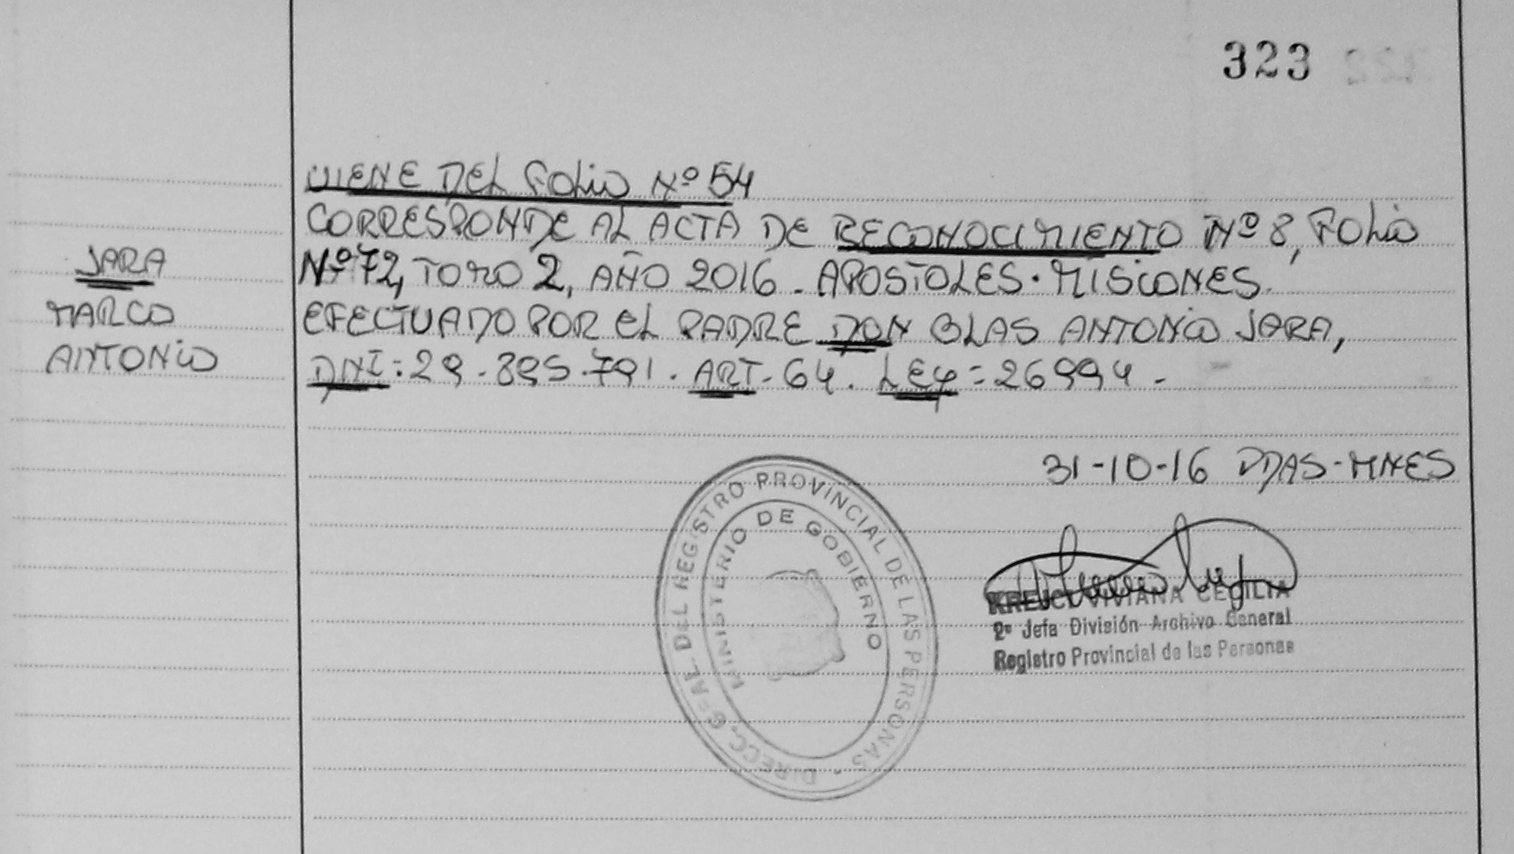 323
VIENE DEL FOLIO Nº 54
CORRESPONDE AL ACTA DE RECONOCIMIENTO Nº 8, FOLIO
Nº 72, TOMO 2, AÑO 2016. APOSTOLES. MISIONES.
EFECTUADO POR EL PADRE DON BLAS ANTONIO JARA,
DNI: 29.895.791. ART. 64. LEY = 26994.-
JARA
MARCO
ANTONIO
31-10-16 PDAS-MNES
DIRECC. GRAL DEL REGISTRO PROVINCIAL DE LAS PERSONAS
MINISTERIO DE GOBIERNO
KREJCI VIVIANA CECILIA
2º Jefa División Archivo General
Registro Provincial de las Personas